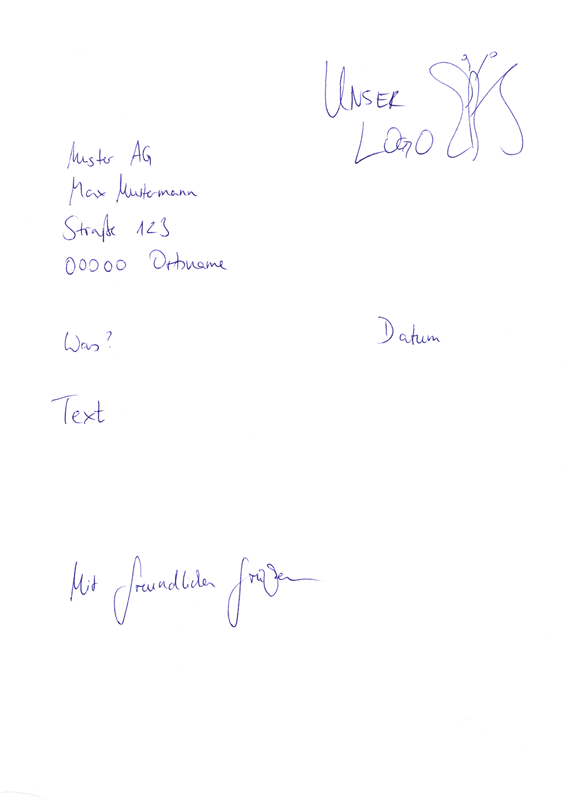 UNSER
LOGO
Muster AG
Max Mustermann
Straße 123
00000 Ortsname
Was?
Datum
Text
Mit freundlichen Grüßen